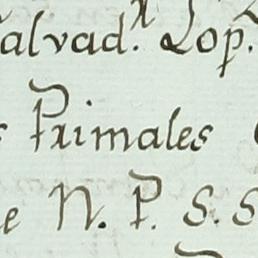 alvad.r Lop.
s Primales
e N. P. S. S